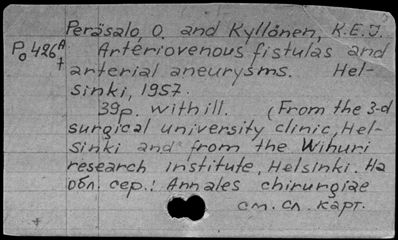 Peräsalo, O. and Kyllönen, K.E.J.
Po 426 A
+
Arteriovenous fistulas and
arterial aneurysms. Hel-
sinki, 1957.
39p. with ill. (From the 3-d
surgical university clinic, Hel-
sinki and from the Wihuri
research institute, Helsinki. На
обл. сер.: Annales chirurgiae
см. сл. карт.
+